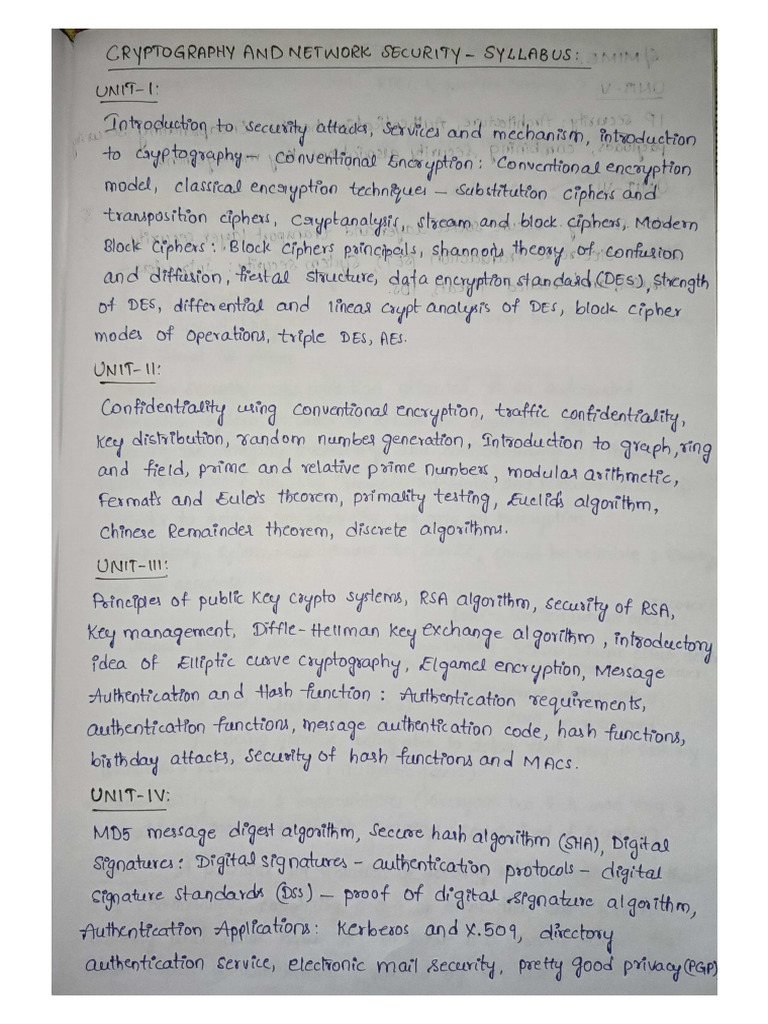 CRYPTOGRAPHY AND NETWORK SECURITY - SYLLABUS:
UNIT-I:
Introduction to security attacks, services and mechanism, introduction
to cryptography - Conventional Encryption: Conventional encryption
model, classical encryption techniques - substitution ciphers and
transposition ciphers, cryptanalysis, stream and block ciphers, Modern
Block Ciphers: Block ciphers principals, shannon's theory of confusion
and diffusion, fiestal structure, data encryption standard (DES), strength
of DES, differential and linear crypt analysis of DES, block cipher
modes of operations, triple DES, AES.
UNIT-II:
Confidentiality using conventional encryption, traffic confidentiality,
key distribution, random number generation, Introduction to graph, ring
and field, prime and relative prime numbers, modular arithmetic,
Fermat's and Euler's theorem, primality testing, Euclid's algorithm,
Chinese Remainder theorem, discrete algorithms.
UNIT-III:
Principles of public key crypto systems, RSA algorithm, security of RSA,
Key management, Diffle-Hellman key exchange algorithm, introductory
idea of Elliptic curve cryptography, Elgamel encryption, Message
Authentication and Hash function: Authentication requirements,
authentication functions, message authentication code, hash functions,
birthday attacks, security of hash functions and MACs.
UNIT-IV:
MD5 message digest algorithm, Secure hash algorithm (SHA), Digital
Signatures: Digital signatures - authentication protocols - digital
signature standards (DSS) - proof of digital signature algorithm,
Authentication Applications: Kerberos and X.509, directory
authentication service, electronic mail security, pretty good privacy (PGP)